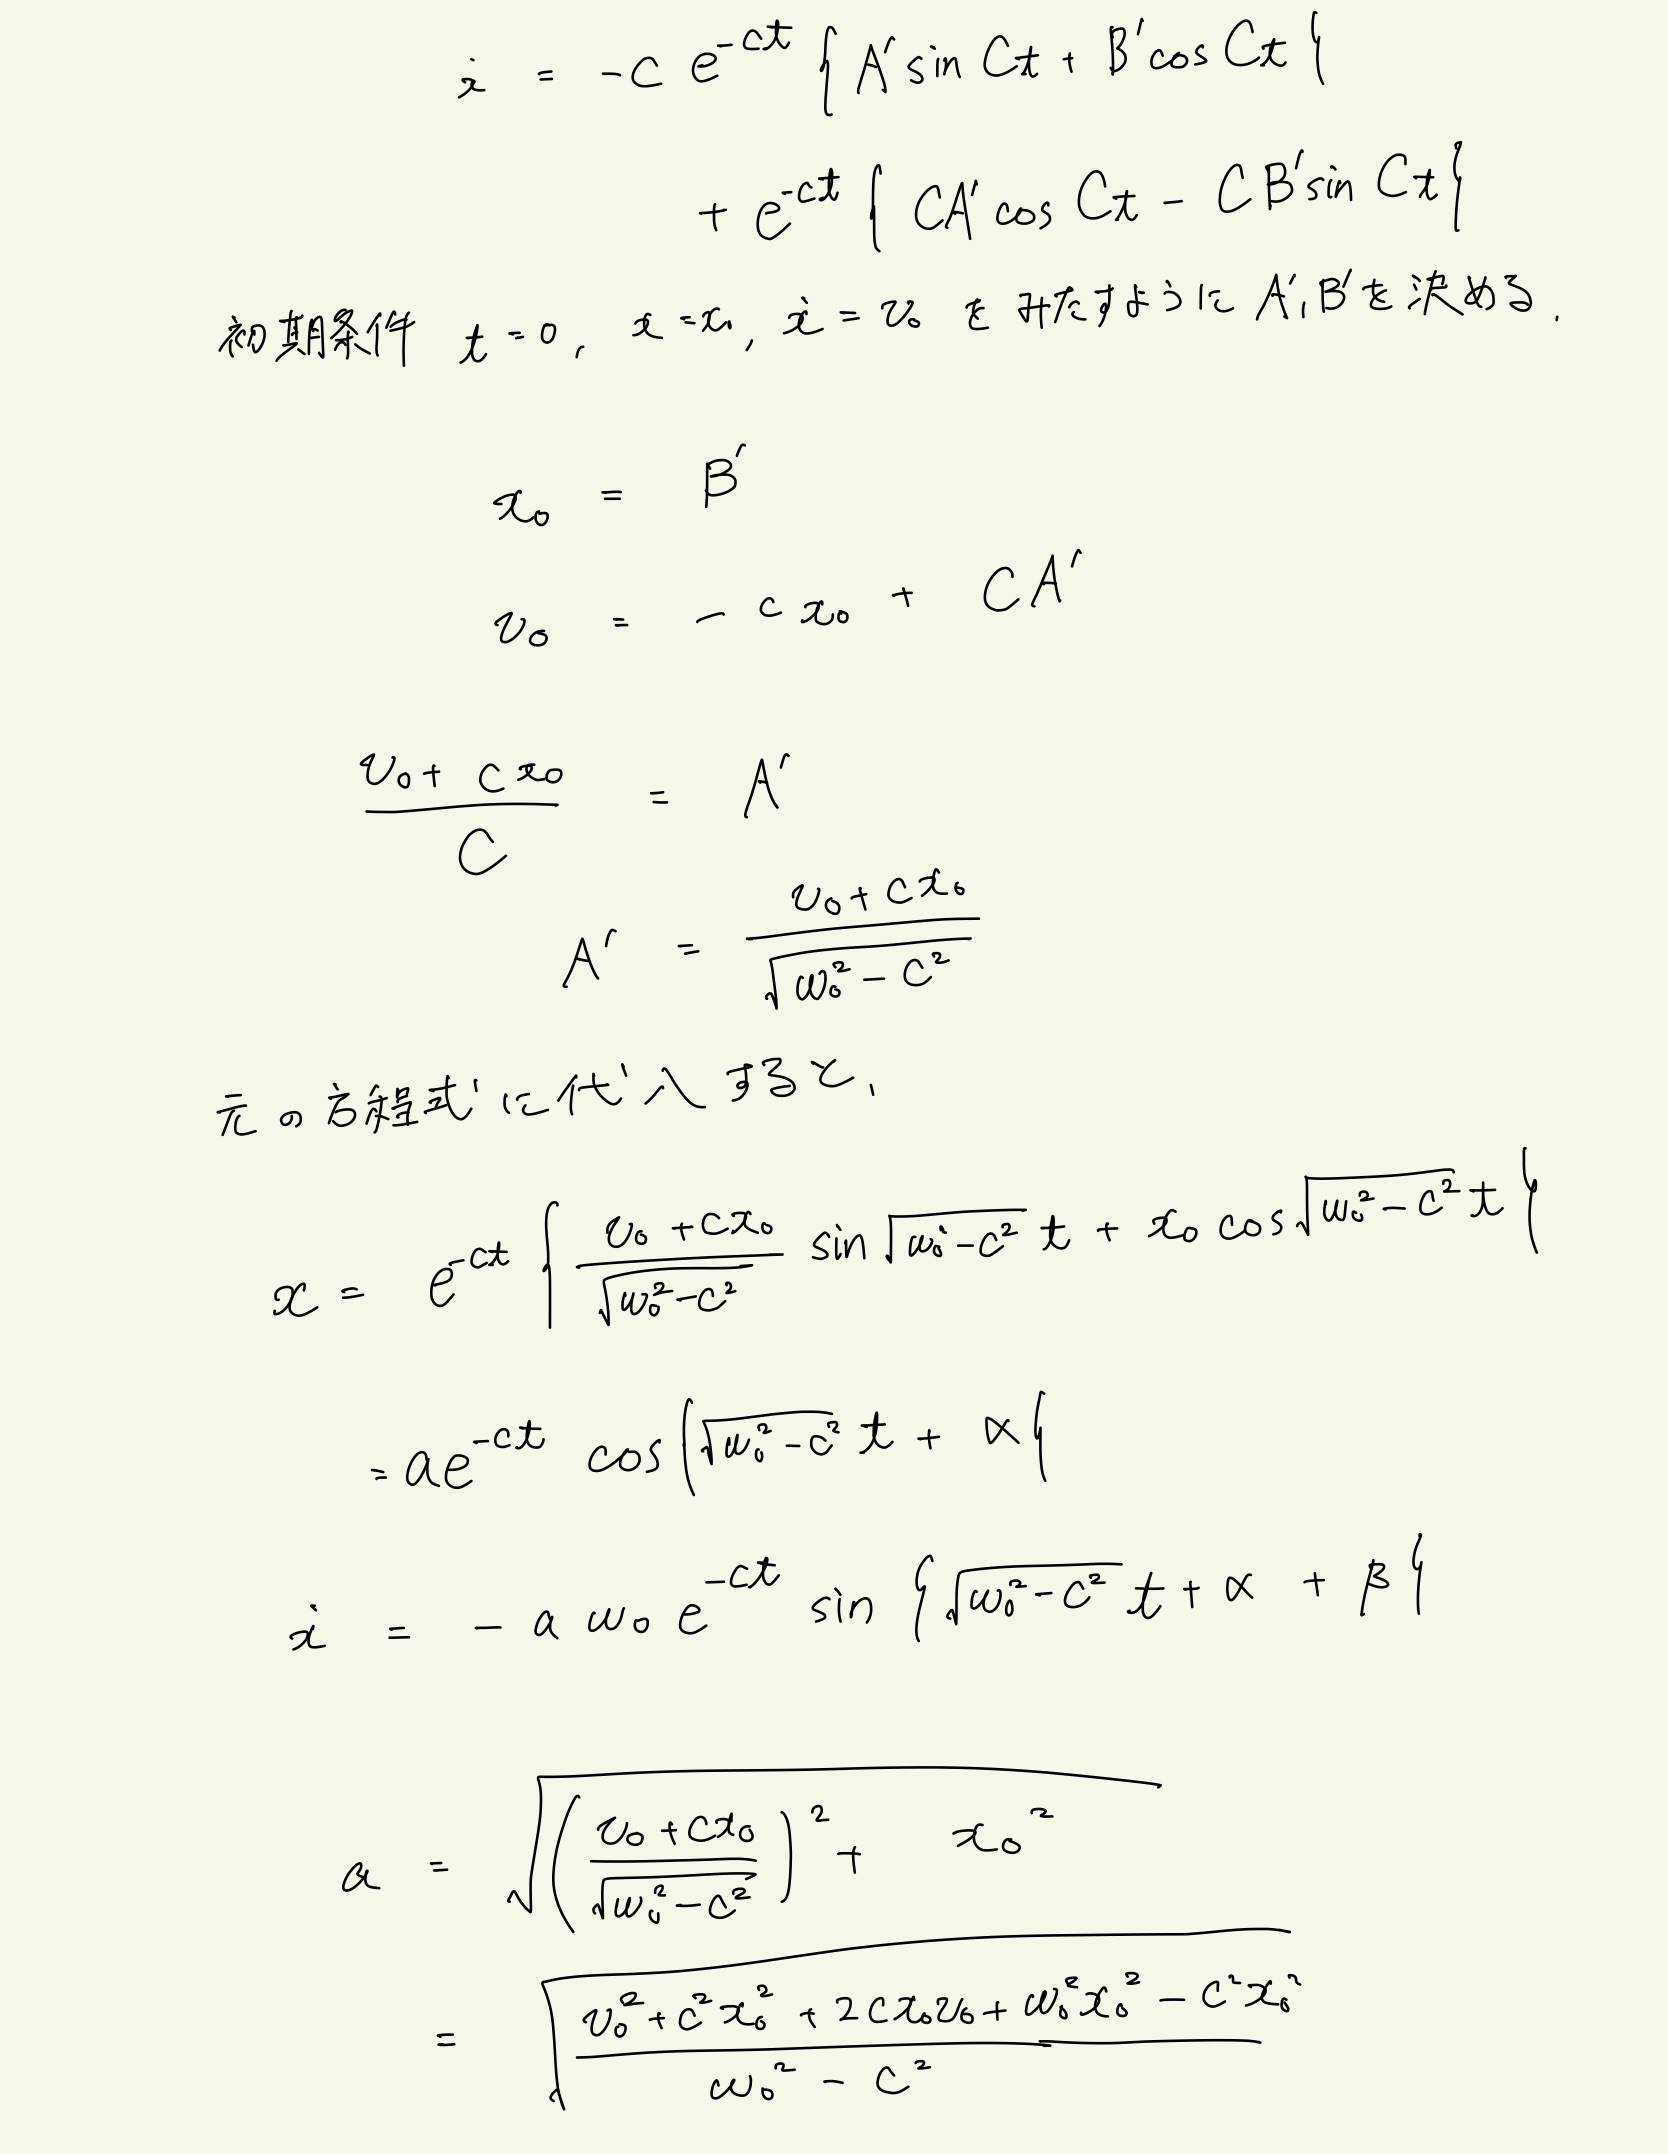 ẋ = -c e^{-ct} { A′ sin Ct + B′ cos Ct }
+ e^{-ct} { CA′ cos Ct - CB′ sin Ct }
初期条件 t = 0, x = x₀, ẋ = v₀ を みたすように A′, B′を決める.
x₀ = B′
v₀ = - c x₀ + CA′
\frac{v₀ + c x₀}{C} = A′
A′ = \frac{v₀ + c x₀}{\sqrt{ω₀² - c²}}
元の方程式に代入すると,
x = e^{-ct} { \frac{v₀ + c x₀}{\sqrt{ω₀² - c²}} sin \sqrt{ω₀² - c²} t + x₀ cos \sqrt{ω₀² - c²} t }
= a e^{-ct} cos { \sqrt{ω₀² - c²} t + α }
ẋ = - a ω₀ e^{-ct} sin { \sqrt{ω₀² - c²} t + α + β }
a = \sqrt{ ( \frac{v₀ + c x₀}{\sqrt{ω₀² - c²}} )² + x₀² }
= \sqrt{ \frac{v₀² + c² x₀² + 2 c x₀ v₀ + ω₀² x₀² - c² x₀²}{ω₀² - c²} }